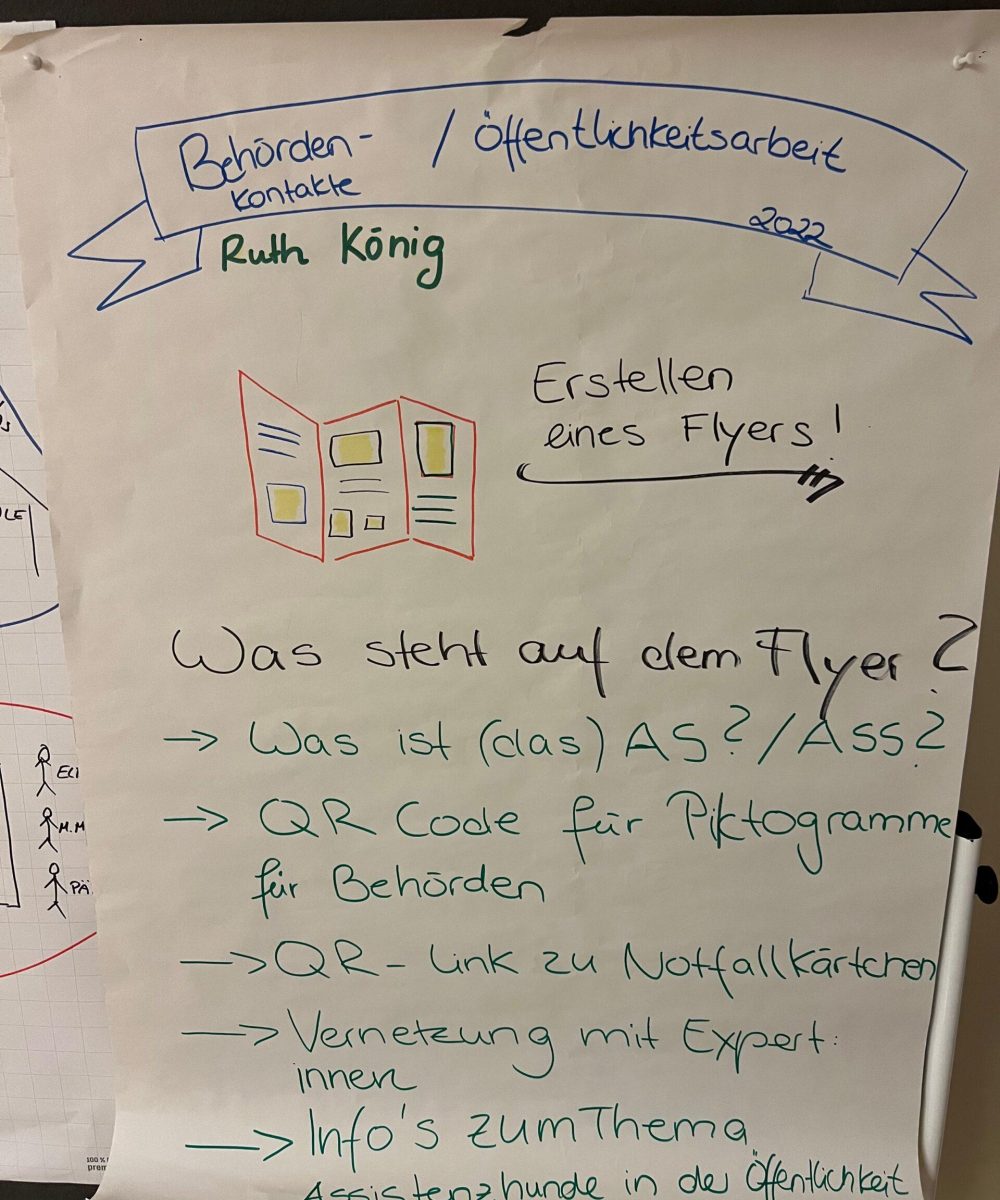 Behörden- / Öffentlichkeitsarbeit
kontakte
2022
Ruth König
Erstellen
eines Flyers!
Was steht auf dem Flyer?
→ Was ist (das) AS? / ASS?
→ QR Code für Piktogramme
für Behörden
→ QR - Link zu Notfallkärtchen
→ Vernetzung mit Expert:
innen
→ Info's zum Thema
Assistenzhunde in der Öffentlichkeit
ELI
M.M
PÄ